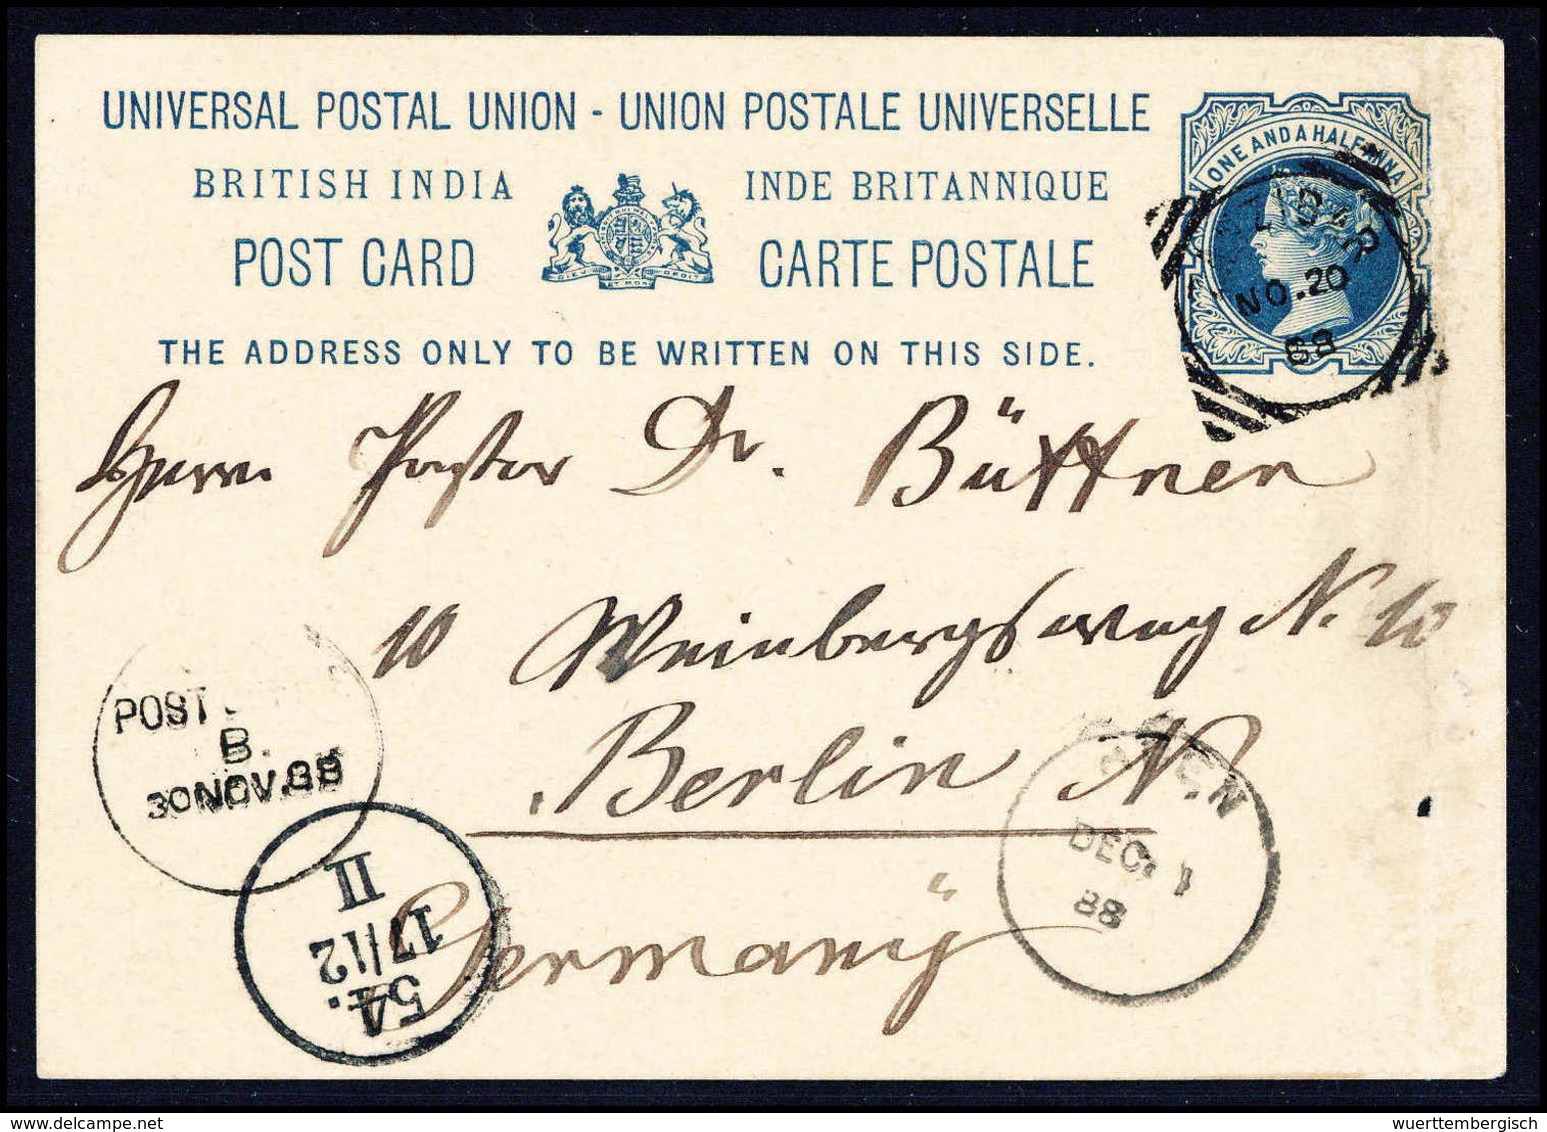 UNIVERSAL POSTAL UNION - UNION POSTALE UNIVERSELLE
BRITISH INDIA INDE BRITANNIQUE
POST CARD CARTE POSTALE
THE ADDRESS ONLY TO BE WRITTEN ON THIS SIDE.
ONE AND A HALF ANNA
ZANZIBAR
NO.20
88
DIEU ET MON DROIT
Herrn Pastor Dr. Büttner
10 Weinbergsweg N. 10
Berlin N.
Germany
POST
B.
30 NOV.88
54.
17/12
II
ADEN
DEC. 1
88
© wuerttembergisch